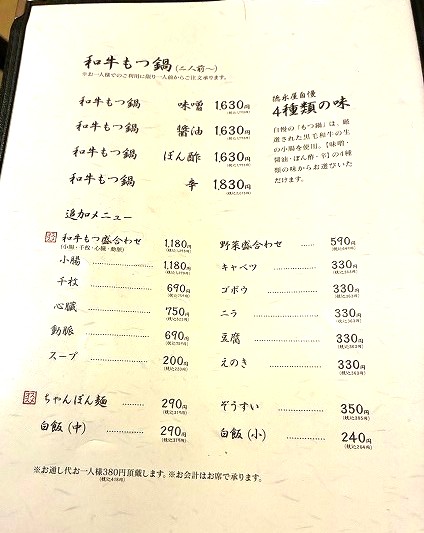 和牛もつ鍋(二人前〜)
※お一人様でのご利用に限り一人前からご注文承ります。
和牛もつ鍋 味噌 1,630円
和牛もつ鍋 醤油 1,630円
和牛もつ鍋 ぽん酢 1,630円
和牛もつ鍋 辛 1,830円
徳永屋自慢
4種類の味
自慢の「もつ鍋」は、厳
選された黒毛和牛の生
の小腸を使用。【味噌・
醤油・ぽん酢・辛】の4種
類の味からお選びいた
だけます。
追加メニュー
和牛もつ盛合わせ 1,180円
(小腸・千枚・心臓・動脈)
小腸 1,180円
千枚 690円
心臓 750円
動脈 690円
スープ 200円
(税込220円)
野菜盛合わせ 590円
キャベツ 330円
(税込363円)
ゴボウ 330円
(税込363円)
ニラ 330円
(税込363円)
豆腐 330円
(税込363円)
えのき 330円
(税込363円)
ちゃんぽん麺 290円
(税込319円)
白飯(中) 290円
(税込319円)
ぞうすい 350円
(税込385円)
白飯(小) 240円
(税込264円)
※お通し代お一人様380円頂戴します。※お会計はお席で承ります。
(税込418円)